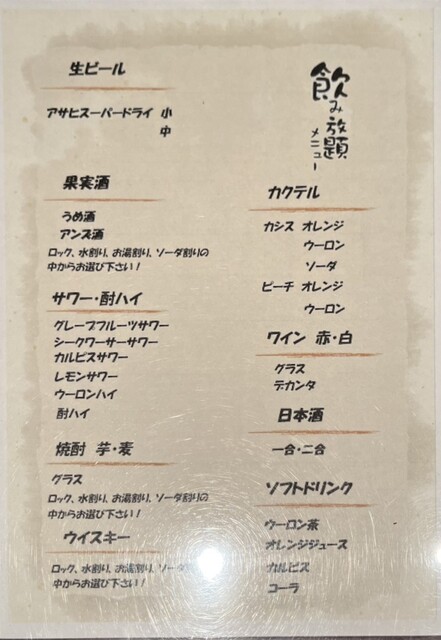 飲み放題
メニュー
生ビール
アサヒスーパードライ 小
中
果実酒
うめ酒
アンズ酒
ロック、水割り、お湯割り、ソーダ割りの
中からお選び下さい！
サワー・酎ハイ
グレープフルーツサワー
シークワーサーサワー
カルピスサワー
レモンサワー
ウーロンハイ
酎ハイ
焼酎 芋・麦
グラス
ロック、水割り、お湯割り、ソーダ割りの
中からお選び下さい！
ウイスキー
ロック、水割り、お湯割り、ソーダ
中からお選び下さい！
カクテル
カシス オレンジ
ウーロン
ソーダ
ピーチ オレンジ
ウーロン
ワイン 赤・白
グラス
デカンタ
日本酒
一合・二合
ソフトドリンク
ウーロン茶
オレンジジュース
カルピス
コーラ